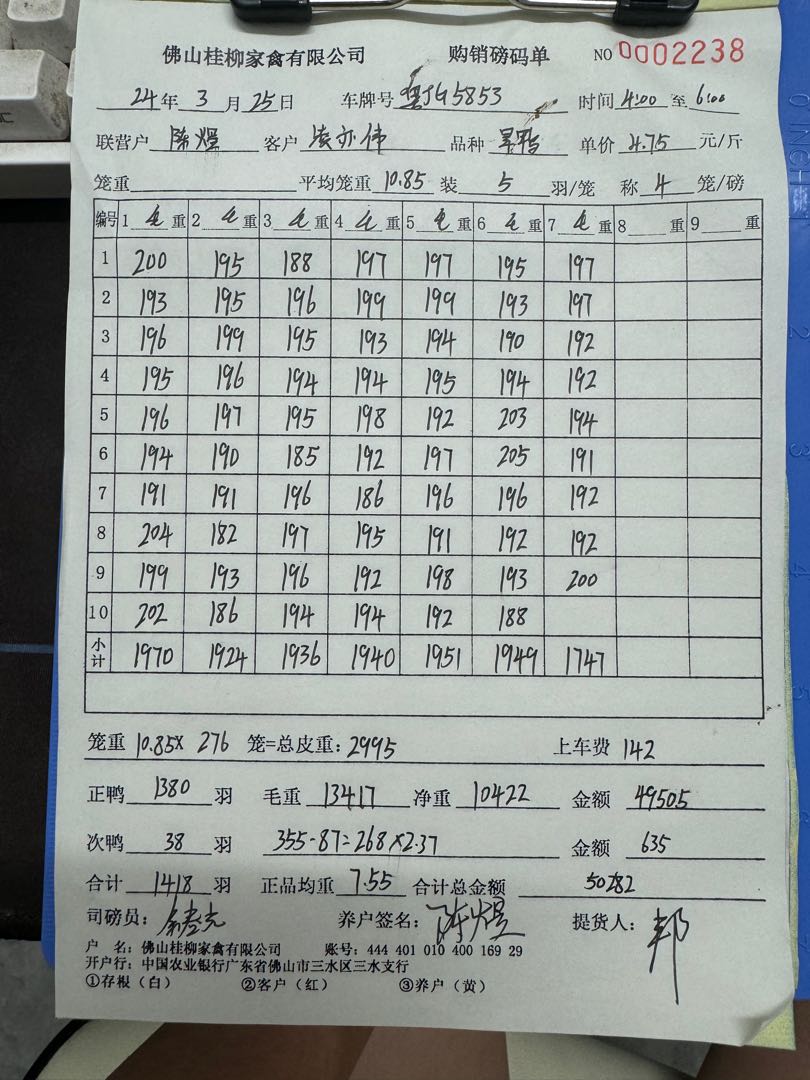 佛山桂柳家禽有限公司 购销磅码单 NO 0002238
24年 3月 25日 车牌号 粤J95853 时间 4:00 至 6:00
联营户 陈煜 客户 凌亦伟 品种 单价 4.75 元/斤
笼重 平均笼重 10.85 装 5 羽/笼 称 4 笼/磅
编号 1 毛 重 2 毛 重 3 毛 重 4 毛 重 5 毛 重 6 毛 重 7 毛 重 8 重 9 重
1 200 195 188 197 197 195 197
2 193 195 196 199 199 193 197
3 196 199 195 193 194 190 192
4 195 196 194 194 195 194 192
5 196 197 195 198 192 203 194
6 194 190 185 192 197 205 191
7 191 191 196 186 196 196 192
8 204 182 197 195 191 192 192
9 199 193 196 192 198 193 200
10 202 186 194 194 192 188
小计 1970 1924 1936 1940 1951 1949 1747
笼重 10.85× 276 笼=总皮重: 2995 上车费 142
正鸭 1380 羽 毛重 13417 净重 10422 金额 49505
次鸭 38 羽 355-87=268×2.37 金额 635
合计 1418 羽 正品均重 7.55 合计总金额 50282
司磅员: 养户签名: 陈煜 提货人: 邦
户 名: 佛山桂柳家禽有限公司 账号: 444 401 010 400 169 29
开户行: 中国农业银行广东省佛山市三水区三水支行
①存根(白) ②客户(红) ③养户(黄)